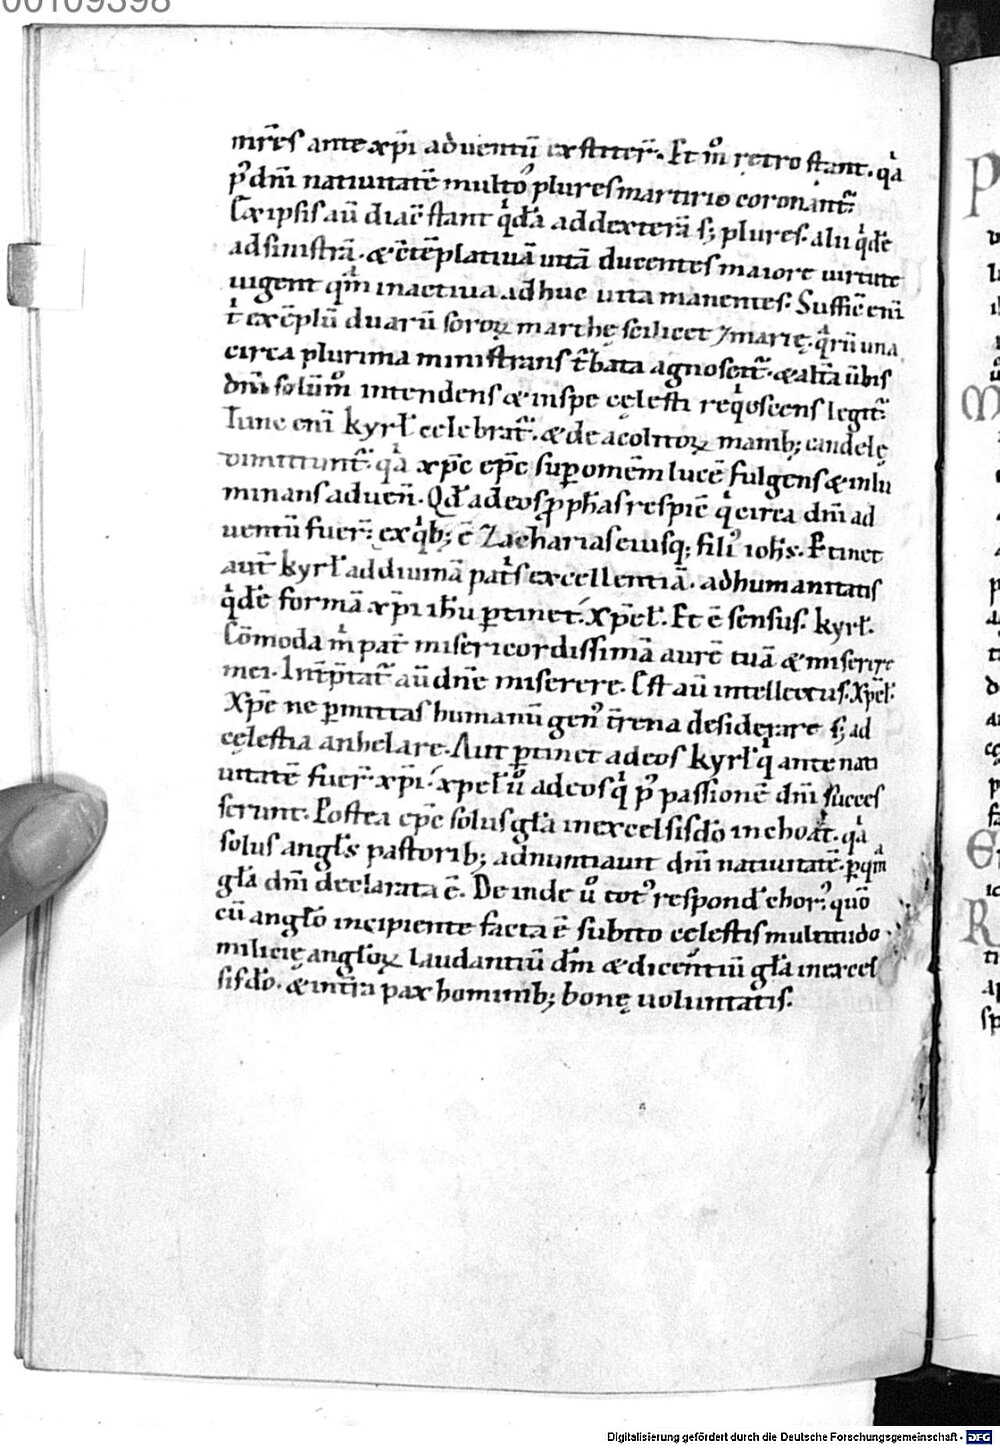 00109398
mr̄es ante xp̄i aduentū extiter̄. Et m̊ retro stant. qͣa
p᷒ dn̄i natiuitatē multo plures martirio coronant᷑.
Ex ipsis aū diac̄ stant qͥdā ad dexterā s; plures. alii qͥdē
ad sinistrā. & c̄tēplatiuā uitā ducentes maiore uirtute
uigent qͣm in actiua adhuc uita manentes. Suffic̄ eni
t̄ exēplū duarū sororꝝ marthę scilicet ⁊ marię. qͣrū una
circa plurima ministrans t̄bata agnoscit᷑. & alt̄a ūbis
dn̄i solūm̊ intendens & in spe cęlesti reqͥescens legit᷑.
Tunc eni kyrł celebrat᷑. & de acolitorꝝ manib; candelę
dimittunt᷑. qͣa xp̄c ep̄c sup omēm lucē fulgens & inlu
minans aduen̄. Qd̄ ad eos ꝓphas respic̄ qͥ circa dn̄i ad
uentū fuer̄. ex qͥb; ē Zacharias eiusq; fili᷒ ioħs. Ptinet
aut̄ kyrł ad diuinā pat̄s excellentiā. ad humanitatis
qͥdē formā xp̄i ihū ꝑtinet. Xp̄eł. Et ē sensus. kyrł.
Cōmoda mͥ pat̄ misericordissimā aurē tuā & miserire
mei. Int̄p̄tat᷑ aū dn̄e miserere. Est aū intellectus. Xp̄eł.
Xp̄e ne ꝑmittas humanū gen᷒ t̄rena desiderare s; ad
cęlestia anhelare. Aut ꝑtinet ad eos kyrł qͥ ante nati
uitatē fuer̄ xp̄i. xpeł ů ad eos qͥ p᷒ passionē dn̄i succes
serunt. Postea ep̄c solus głā in excelsis do inchoat̄. qͣa
solus angłs pastorib; adnuntiauit dn̄i natiuitatē. ꝑ qͣm
głā dn̄i declarata ē. Deinde ů tot᷒ respond̄ chor᷒. quō
cū angło incipiente facta ē subito cęlestis multitudo
milicię angłorꝝ laudantiū dm̄ & dicentiū głā in excel
sis do. & in t̄ra pax hominib; bonę uoluntatis.
Digitalisierung gefördert durch die Deutsche Forschungsgemeinschaft - DFG